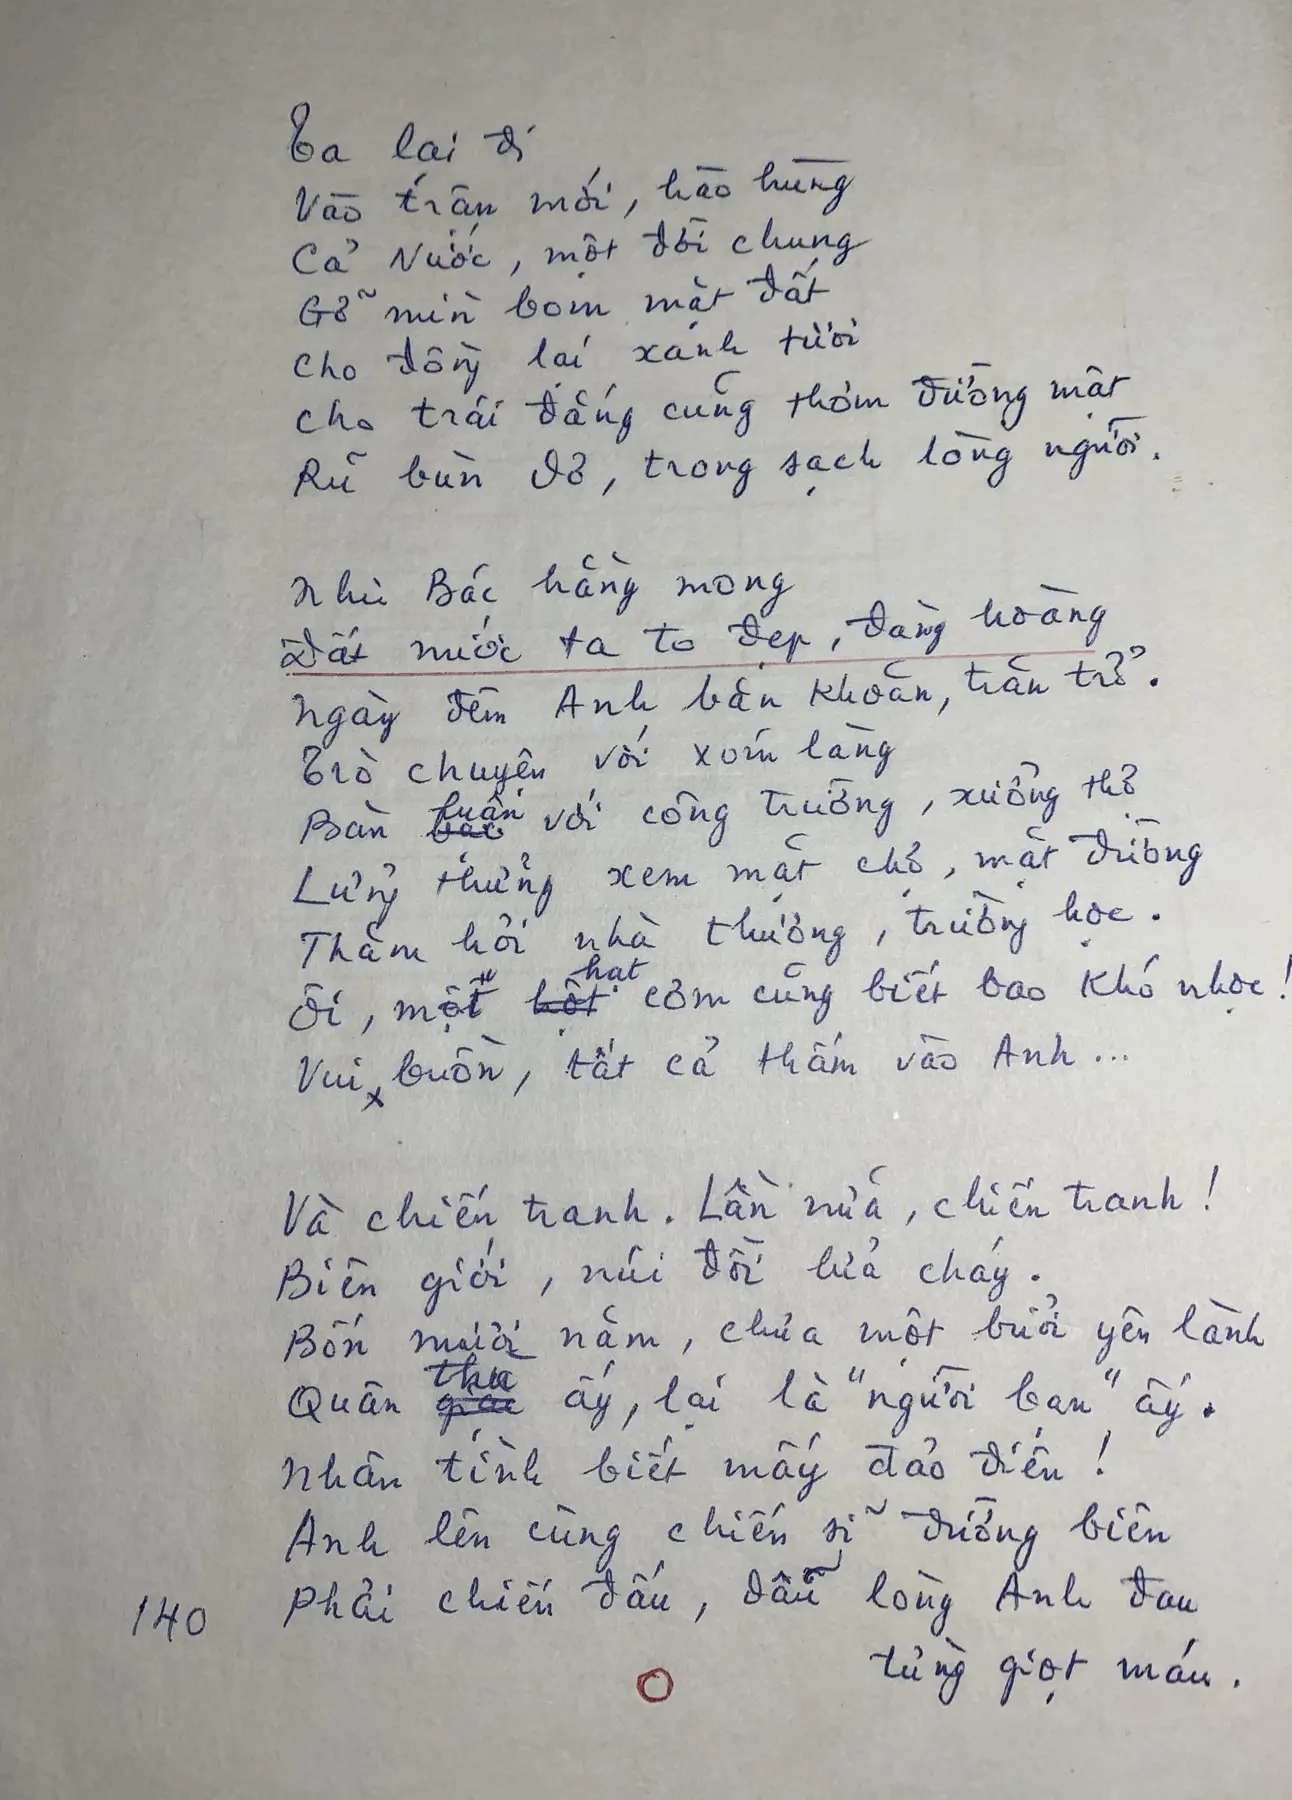 Ta lại đi
Vào trận mới, hào hùng
Cả Nước, một đội chung
Gỡ mìn bom mặt đất
Cho đồng lại xanh tươi
Cho trái đắng cũng thơm đường mật
Rũ bùn dơ, trong sạch lòng người.
Như Bác hằng mong
Đất nước ta to đẹp, đàng hoàng
Ngày đêm Anh băn khoăn, trăn trở.
Trò chuyện với xóm làng
Bàn bạc luận với công trường, xưởng thợ
Lửng thửng xem mặt chợ, mặt đường
Thăm hỏi nhà thương, trường học.
Ôi, một hột hạt cơm cũng biết bao khó nhọc!
Vui, buồn, tất cả thấm vào Anh...
Và chiến tranh. Lần nữa, chiến tranh!
Biên giới, núi đồi lửa cháy.
Bốn mươi năm, chưa một buổi yên lành
Quân giặc thù ấy, lại là "người bạn" ấy.
Nhân tình biết mấy đảo điên!
Anh lên cùng chiến sĩ đường biên
Phải chiến đấu, dẫu lòng Anh đau
từng giọt máu.
140